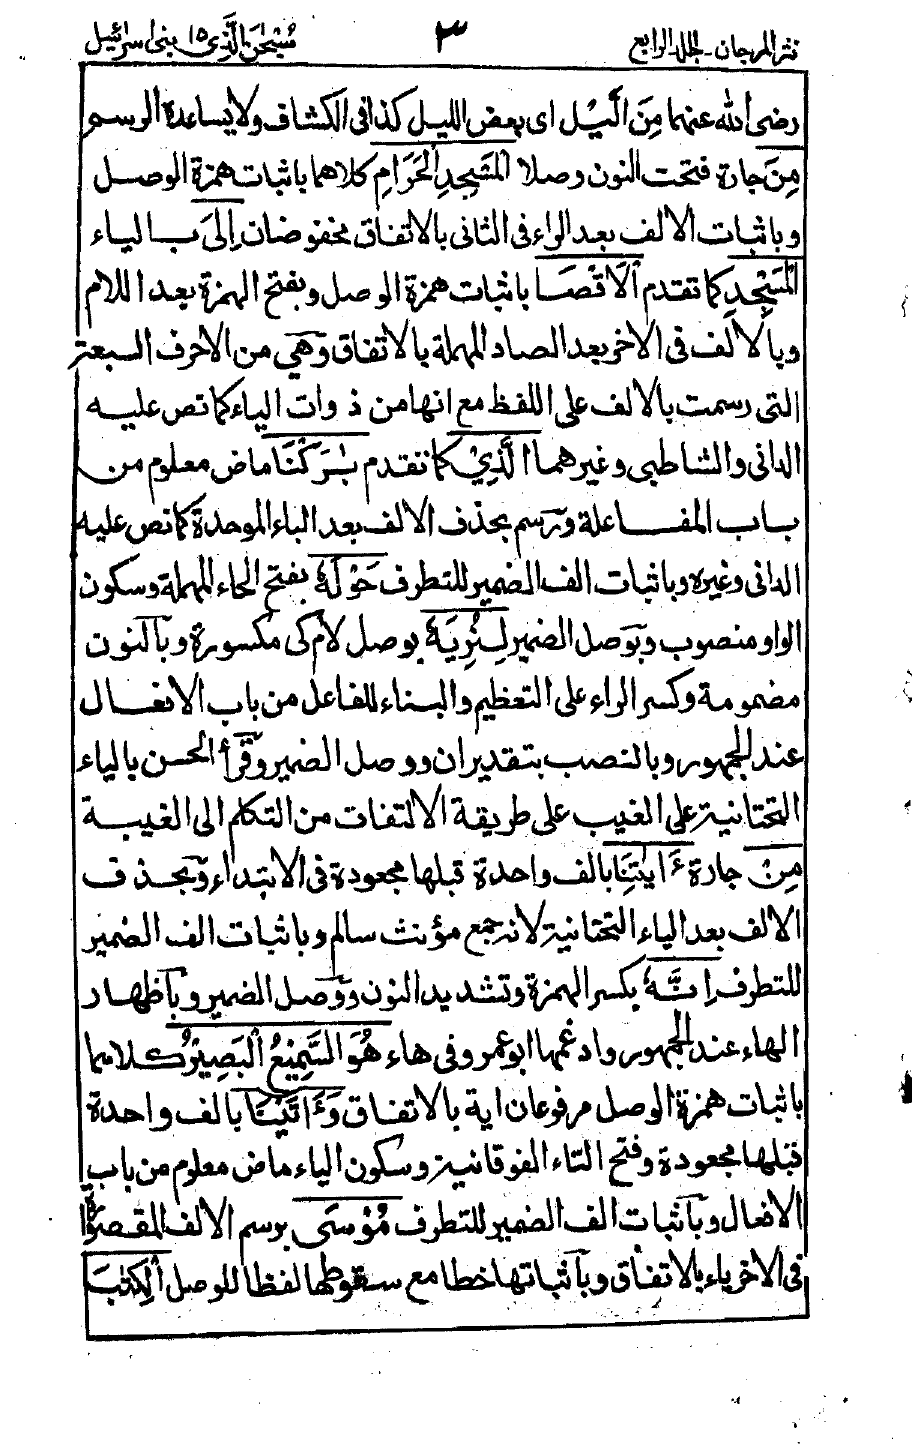 نثر المرجان ـ الجلد الرابع ٣ سُبْحٰنَ الَّذِي ١٥ بنى اسرائيل
رضى الله عنهما مِنَ الَّيْلِ اى بعض الليل كذا فى الكشاف ولا يساعده الرسم
مِنَ جارة فتحت النون وصلا الْمَسْجِدِ الْحَرَامِ كلاهما باثبات همزة الوصل
وباثبات الالف بعد الراء فى الثانى بالاتفاق مخفوضان إِلَى بالياء
الْمَسْجِدِ كما تقدم الْأَقْصَا باثبات همزة الوصل وبفتح الهمزة بعد اللام
وبالالف فى الاخر بعد الصاد المهملة بالاتفاق وهى من الاحرف السبعة
التى رسمت بالالف على اللفظ مع انها من ذوات الياء كما نص عليه
الدانى والشاطبى وغيرهما الَّذِيْ كما تقدم بٰرَكْنَا ماض معلوم من
باب المفاعلة ورسم بحذف الالف بعد الباء الموحدة كما نص عليه
الدانى وغيره وباثبات الف الضمير للتطرف حَوْلَهٗ بفتح الحاء المهملة وسكون
الواو منصوب وبوصل الضمير لِنُرِيَهٗ بوصل لام كى مكسورة وبالنون
مضمومة وكسر الراء على التعظيم والبناء للفاعل من باب الافعال
عند الجمهور وبالنصب بتقدير ان ووصل الضمير وقرأ الحسن بالياء
التحتانية على الغيب على طريقة الالتفات من التكلم الى الغيبة
مِنْ جارة ءَايٰتِنَا بالف واحدة قبلها مجعودة فى الابتداء وبحذف
الالف بعد الياء التحتانية لانه جمع مؤنث سالم وباثبات الف الضمير
للتطرف اِنَّهٗ بكسر الهمزة وتشديد النون ووصل الضمير وباظهار
الهاء عند الجمهور وادغمها ابو عمرو فى هاء هُوَ السَّمِيْعُ الْبَصِيْرُ كلاهما
باثبات همزة الوصل مرفوعان اية بالاتفاق وَءَاتَيْنَا بالف واحدة
قبلها مجعودة وفتح التاء الفوقانية وسكون الياء ماض معلوم من باب
الافعال وباثبات الف الضمير للتطرف مُوْسَى برسم الالف المقصورة
فى الاخر ياء بالاتفاق وباثباتها خطا مع سقوطها لفظا للوصل الْكِتٰبَ